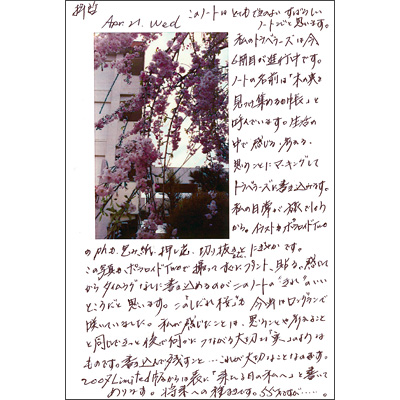 Apr. 21. Wed
このノートは とても
ノートだと思います。
私のトラベラーズは今
6冊目が進行中です。
ノートの名前は「木の実を
見つけ集める手帳」と
呼んでいます。生活の
中で感じる、考える、
思うことにマーキングして
トラベラーズに書き込みます。
私の日常が旅でしょう
から。イラストかポラロイドTwo
のphか、包み紙、押し花、切り抜きなどにぎやかです。
この写真も、ポラロイドTwoで撮ってすぐにプリント、貼る。感じて
からタイムラグなしに書き込めるのがこのノートの いい
ところだと思います。このしだれ桜が 今年はロングランで
咲いていました。私が感じたことは、思うことや考えること
と同じで 後で何かにつながる大切な「実」のような
ものです。書き込んで残すこと…これが大切なことなのです。
2007 Limited缶からは表に「来たる日の私へ」と書いて
あります。将来への種まきです。55才ですが……。